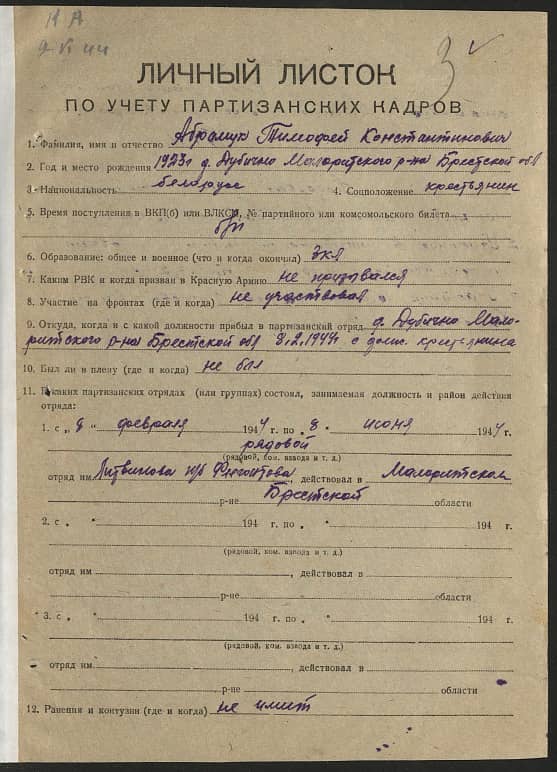 3
ЛИЧНЫЙ ЛИСТОК
ПО УЧЕТУ ПАРТИЗАНСКИХ КАДРОВ
1. Фамилия, имя и отчество Абрамук Тимофей Константинович
2. Год и место рождения 1923г д. Дубично Малоритского р-на Брестской обл
3. Национальность белорус 4. Соцположение крестьянин
5. Время поступления в ВКП(б) или ВЛКСМ, № партийного или комсомольского билета
б/п
6. Образование: общее и военное (что и когда окончил) 3кл
7. Каким РВК и когда призван в Красную Армию не призывался
8. Участие на фронтах (где и когда) не участвовал
9. Откуда, когда и с какой должности прибыл в партизанский отряд д. Дубично Мало-
ритского р-на Брестской обл 8.2.1944 с долж. крестьянина
10. Был ли в плену (где и когда) не был
11. В каких партизанских отрядах (или группах) состоял, занимаемая должность и район действия
отряда:
1. с „ 8 " февраля 1944 г. по „ 8 " июня 1944 г.
рядовой
(рядовой, ком. взвода и т. д.)
отряд им Литвинова п/б , действовал в Малоритском
р-не Брестской области
2. с „ " 194 г. по „ " 194 г.
(рядовой, ком. взвода и т. д.)
отряд им , действовал в
р-не области
3. с „ " 194 г. по „ " 194 г.
(рядовой, ком. взвода и т. д.)
отряд им , действовал в
р-не области
12. Ранения и контузии (где и когда) не имит